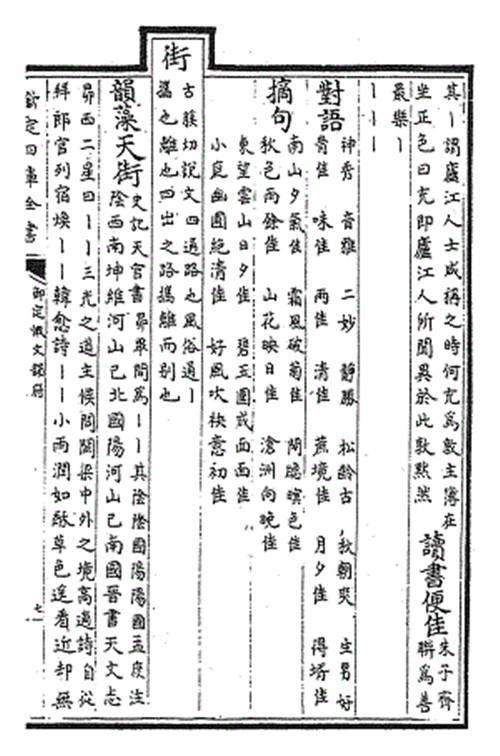 其丨謂廬江人士咸稱之時何充爲敦主簿在
坐正色曰充即廬江人所聞異於此敦黙然
讀書便佳
朱子齊
聨爲善
最樂丨
丨丨丨
對語
神秀 音雅 二妙 靜勝 松齡古 秋朝爽 生男好
骨佳 味佳 雨佳 清佳 蔗境佳 月夕佳 得壻佳
摘句
南山夕氣佳 霜風破菊佳 閒牕暝色佳
秋色雨餘佳 山花映日佳 滄洲向晚佳
東望雲山日夕佳 碧玉圍成面面佳
小庭幽圃絶清佳 好風吹袂意初佳
街
古膎切說文四通路也風俗通丨
攜也離也四出之路攜離而别也
韻藻
天街
史記天官書昴畢間爲丨丨其陰陰國陽陽國孟康注
陰西南坤維河山已北國陽河山已南國晉書天文志
昴西二星曰丨丨三光之道主候闗梁中外之境高適詩自從
拜郎官列宿煥丨丨韓愈詩丨丨小雨潤如酥草色遙看近却無
欽定四庫全書
御定佩文韻府
七一